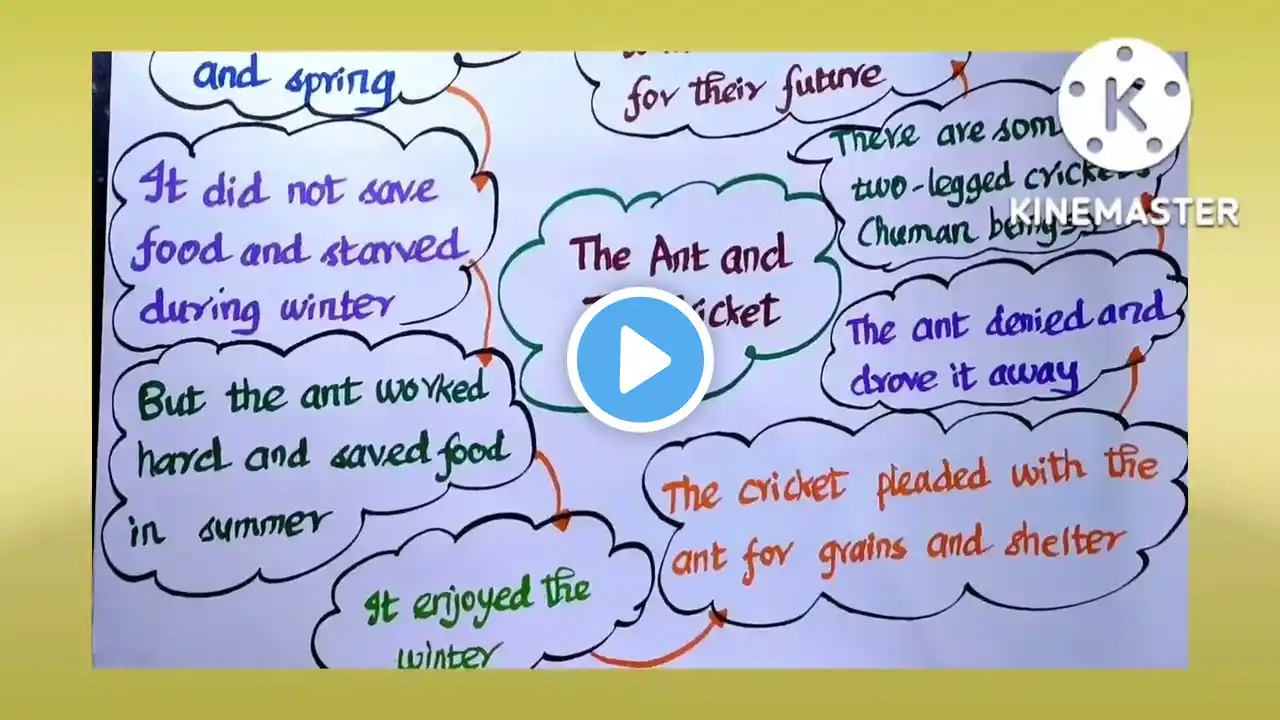 and spring
It did not save
food and starved
during winter
But the ant worked
hard and saved food
in summer
It enjoyed the
winter
The cricket pleaded with the
ant for grains and shelter
The ant denied and
drove it away
There are som
two-legged crickets
(human beings
for their future
The Ant and
cket
K
KINEMASTER